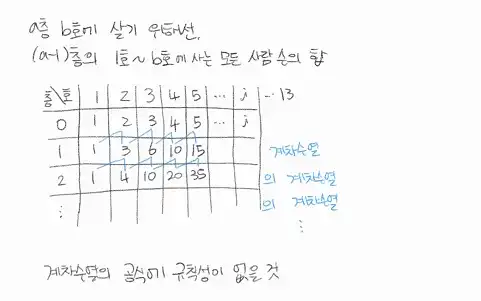 a층 b호에 살기 위해선,
(a-1)층의 1호~b호에 사는 모든 사람 수의 합
층\호 1 2 3 4 5 ... i ... 13
0 1 2 3 4 5 ... i
1 1 3 6 10 15 계차수열
2 1 4 10 20 35 의 계차수열
⋮ 의 계차수열
⋮
계차수열의 공식에 규칙성이 없을 것